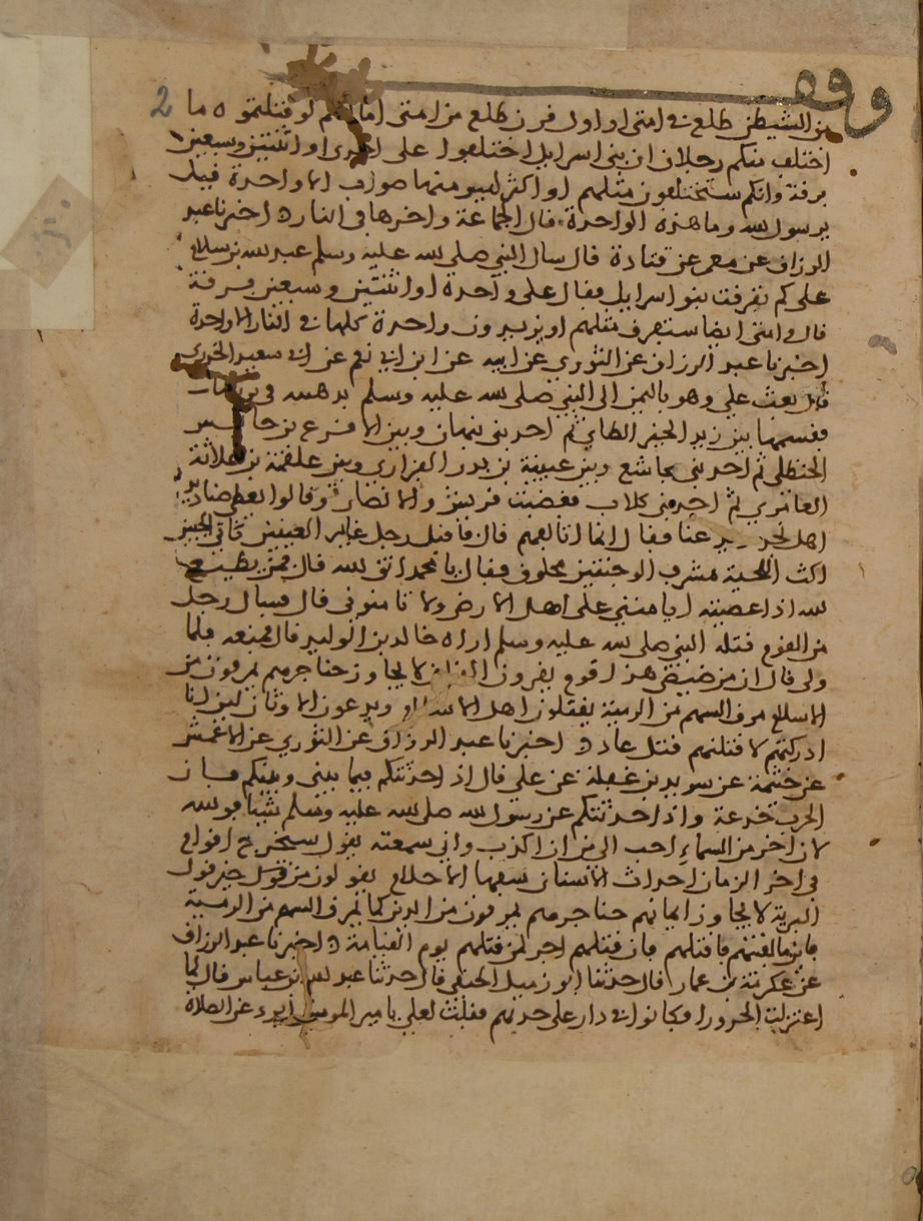 وقف
2
من الشيطن طلع في امتي او اول قرن طلع من امتي اما انكم لو قتلتموه ما
اختلف منكم رجلان ان بني اسرايل اختلفوا على احدى او اثنتين وسبعين
فرقة وانكم ستختلفون مثلهم او اكثر ليس منها صواب الا واحدة قيل
يرسول الله وما هذه الواحدة قال الجماعة واخرها في النار اخبرنا عبد
الرزاق عن معمر عن قتادة قال سال النبي صلى الله عليه وسلم عبد الله بن سلام
على كم تفرقت بنو اسرايل فقال على واحدة او اثنتين وسبعين فرقة
قال وامتي ايضا ستفترق مثلهم او يزيدون واحدة كلها في النار الا واحدة
اخبرنا عبد الرزاق عن الثوري عن ابيه عن ابن ابي نعم عن ابي سعيد الخدري
قال بعث علي وهو باليمن الى النبي صلى الله عليه وسلم بذهبة في تربتها
فقسمها بين زيد الخير الطاي ثم احد بني نبهان وبين الاقرع بن حابس
الحنظلي ثم احد بني مجاشع وبين عيينة بن بدر الفزاري وبين علقمة بن علاثة
العامري ثم احد بني كلاب فغضبت قريش والانصار وقالوا يعطي صناديد
اهل نجد ويدعنا فقال انما اتالفهم قال فاقبل رجل غاير العينين ناتي الجبين
كث اللحية مشرف الوجنتين محلوق فقال يا محمد اتق الله قال فمن يطيع
الله اذا عصيته ايامنني على اهل الارض ولا تامنوني قال فسال رجل
من القوم قتله النبي صلى الله عليه وسلم اراه خالد بن الوليد قال فمنعه فلما
ولى قال ان من ضيضي هذا قوم يقرون القران لا يجاوز حناجرهم يمرقون من
الاسلام مرق السهم من الرمية يقتلون اهل الاسلام ويدعون الاوثان لين انا
ادركتهم لاقتلنهم قتل عاد اخبرنا عبد الرزاق عن الثوري عن الاعمش
عن خيثمة عن سويد بن غفلة عن علي قال اذا حدثتكم فيما بيني وبينكم فان
الحرب خدعة واذا حدثتكم عن رسول الله صلى الله عليه وسلم شيا فوالله
لان اخر من السماء احب الي من ان اكذب واني سمعته يقول سيخرج اقوام
في اخر الزمان احداث الاسنان سفها الاحلام يقولون من قول خير قول
البرية لا يجاوز ايمانهم حناجرهم يمرقون من الدين كما يمرق السهم من الرمية
فاينما لقيتهم فاقتلهم فان قتلهم اجر لمن قتلهم يوم القيامة اخبرنا عبد الرزاق
عن عكرمة بن عمار قال حدثنا ابو زميل الحنفي قال حدثنا عبد الله بن عباس قال لما
اعتزلت الحرورا وكانوا في دار على حدتهم فقلت لعلي يا مير المومنين ابرد عن الصلاة